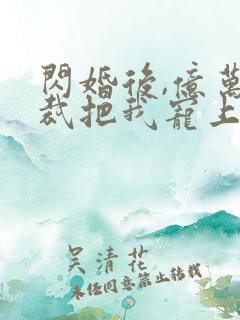 閃婚後,億萬
裁把我寵上
吴清花
未经同意禁止转载